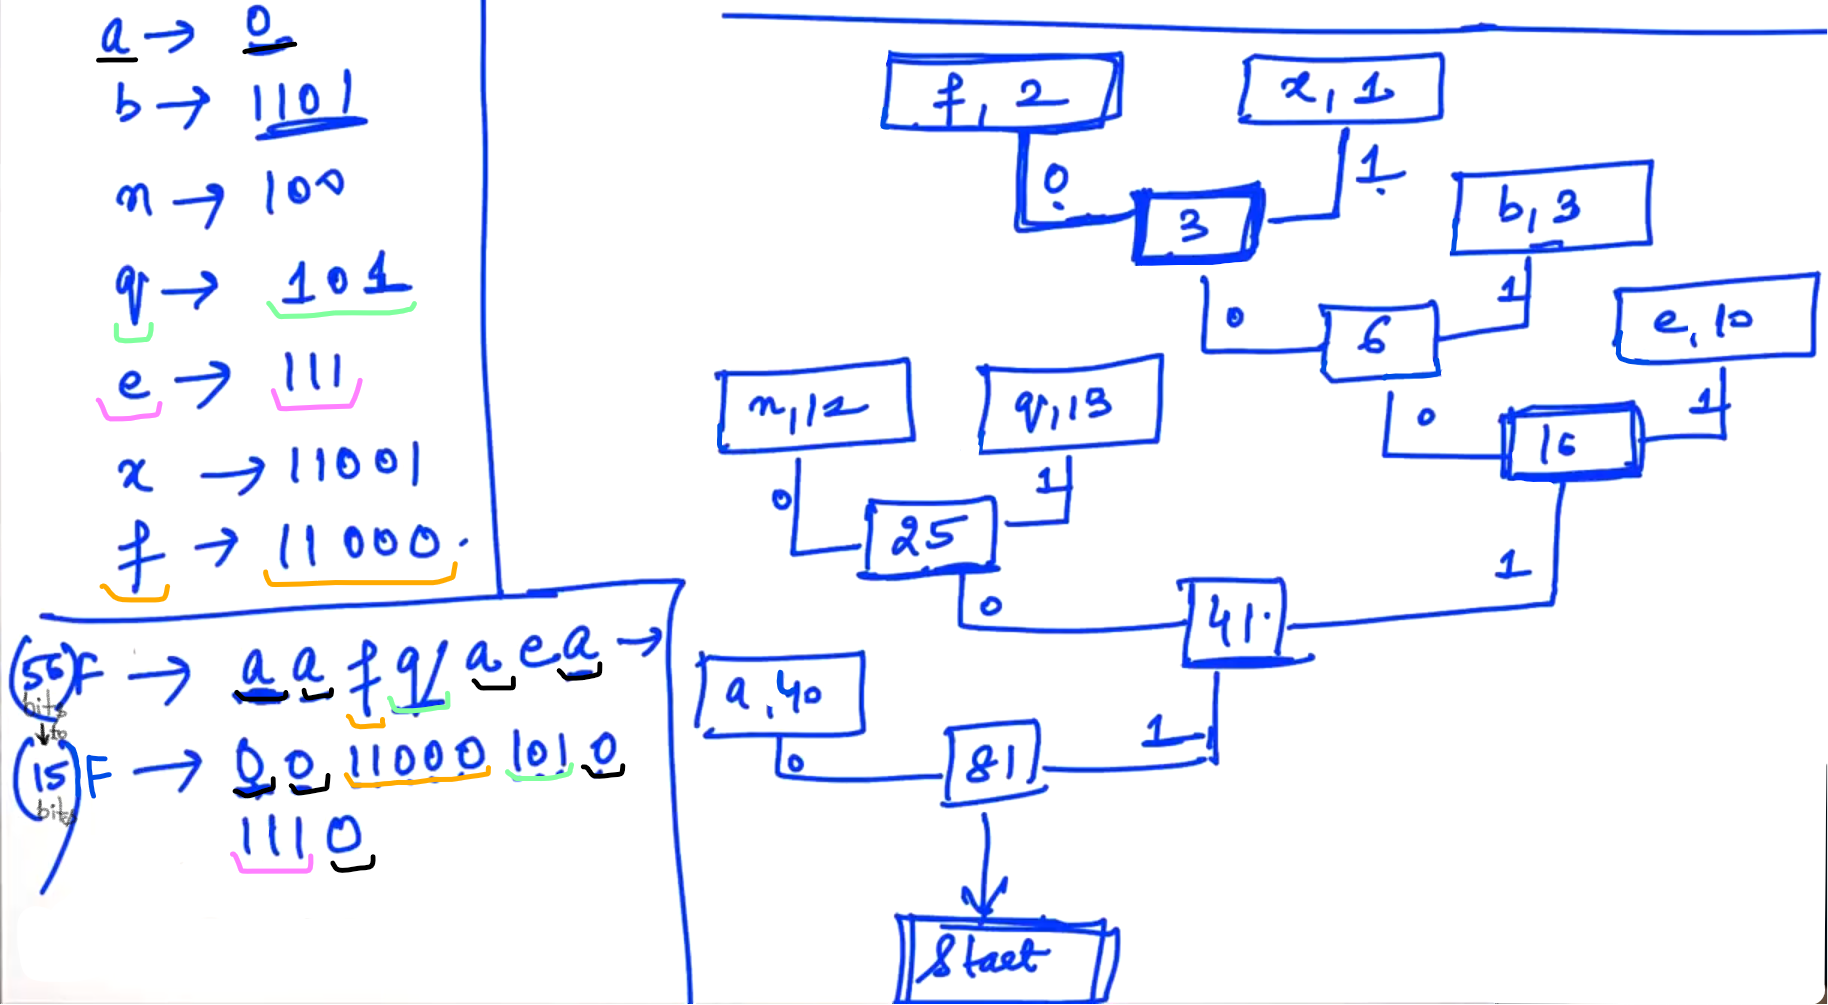 a → 0
b → 1101
n → 100
q → 101
e → 111
x → 11001
f → 11000.
(56)F → a a f q a e a →
bits
↓to
(15)F → 0 0 11000 101 0
bits
111 0
f, 2
x, 1
0
1
3
b, 3
0
1
6
e, 10
n, 12
q, 13
0
1
16
0
1
25
1
0
41.
a, 40
1
0
81
Start